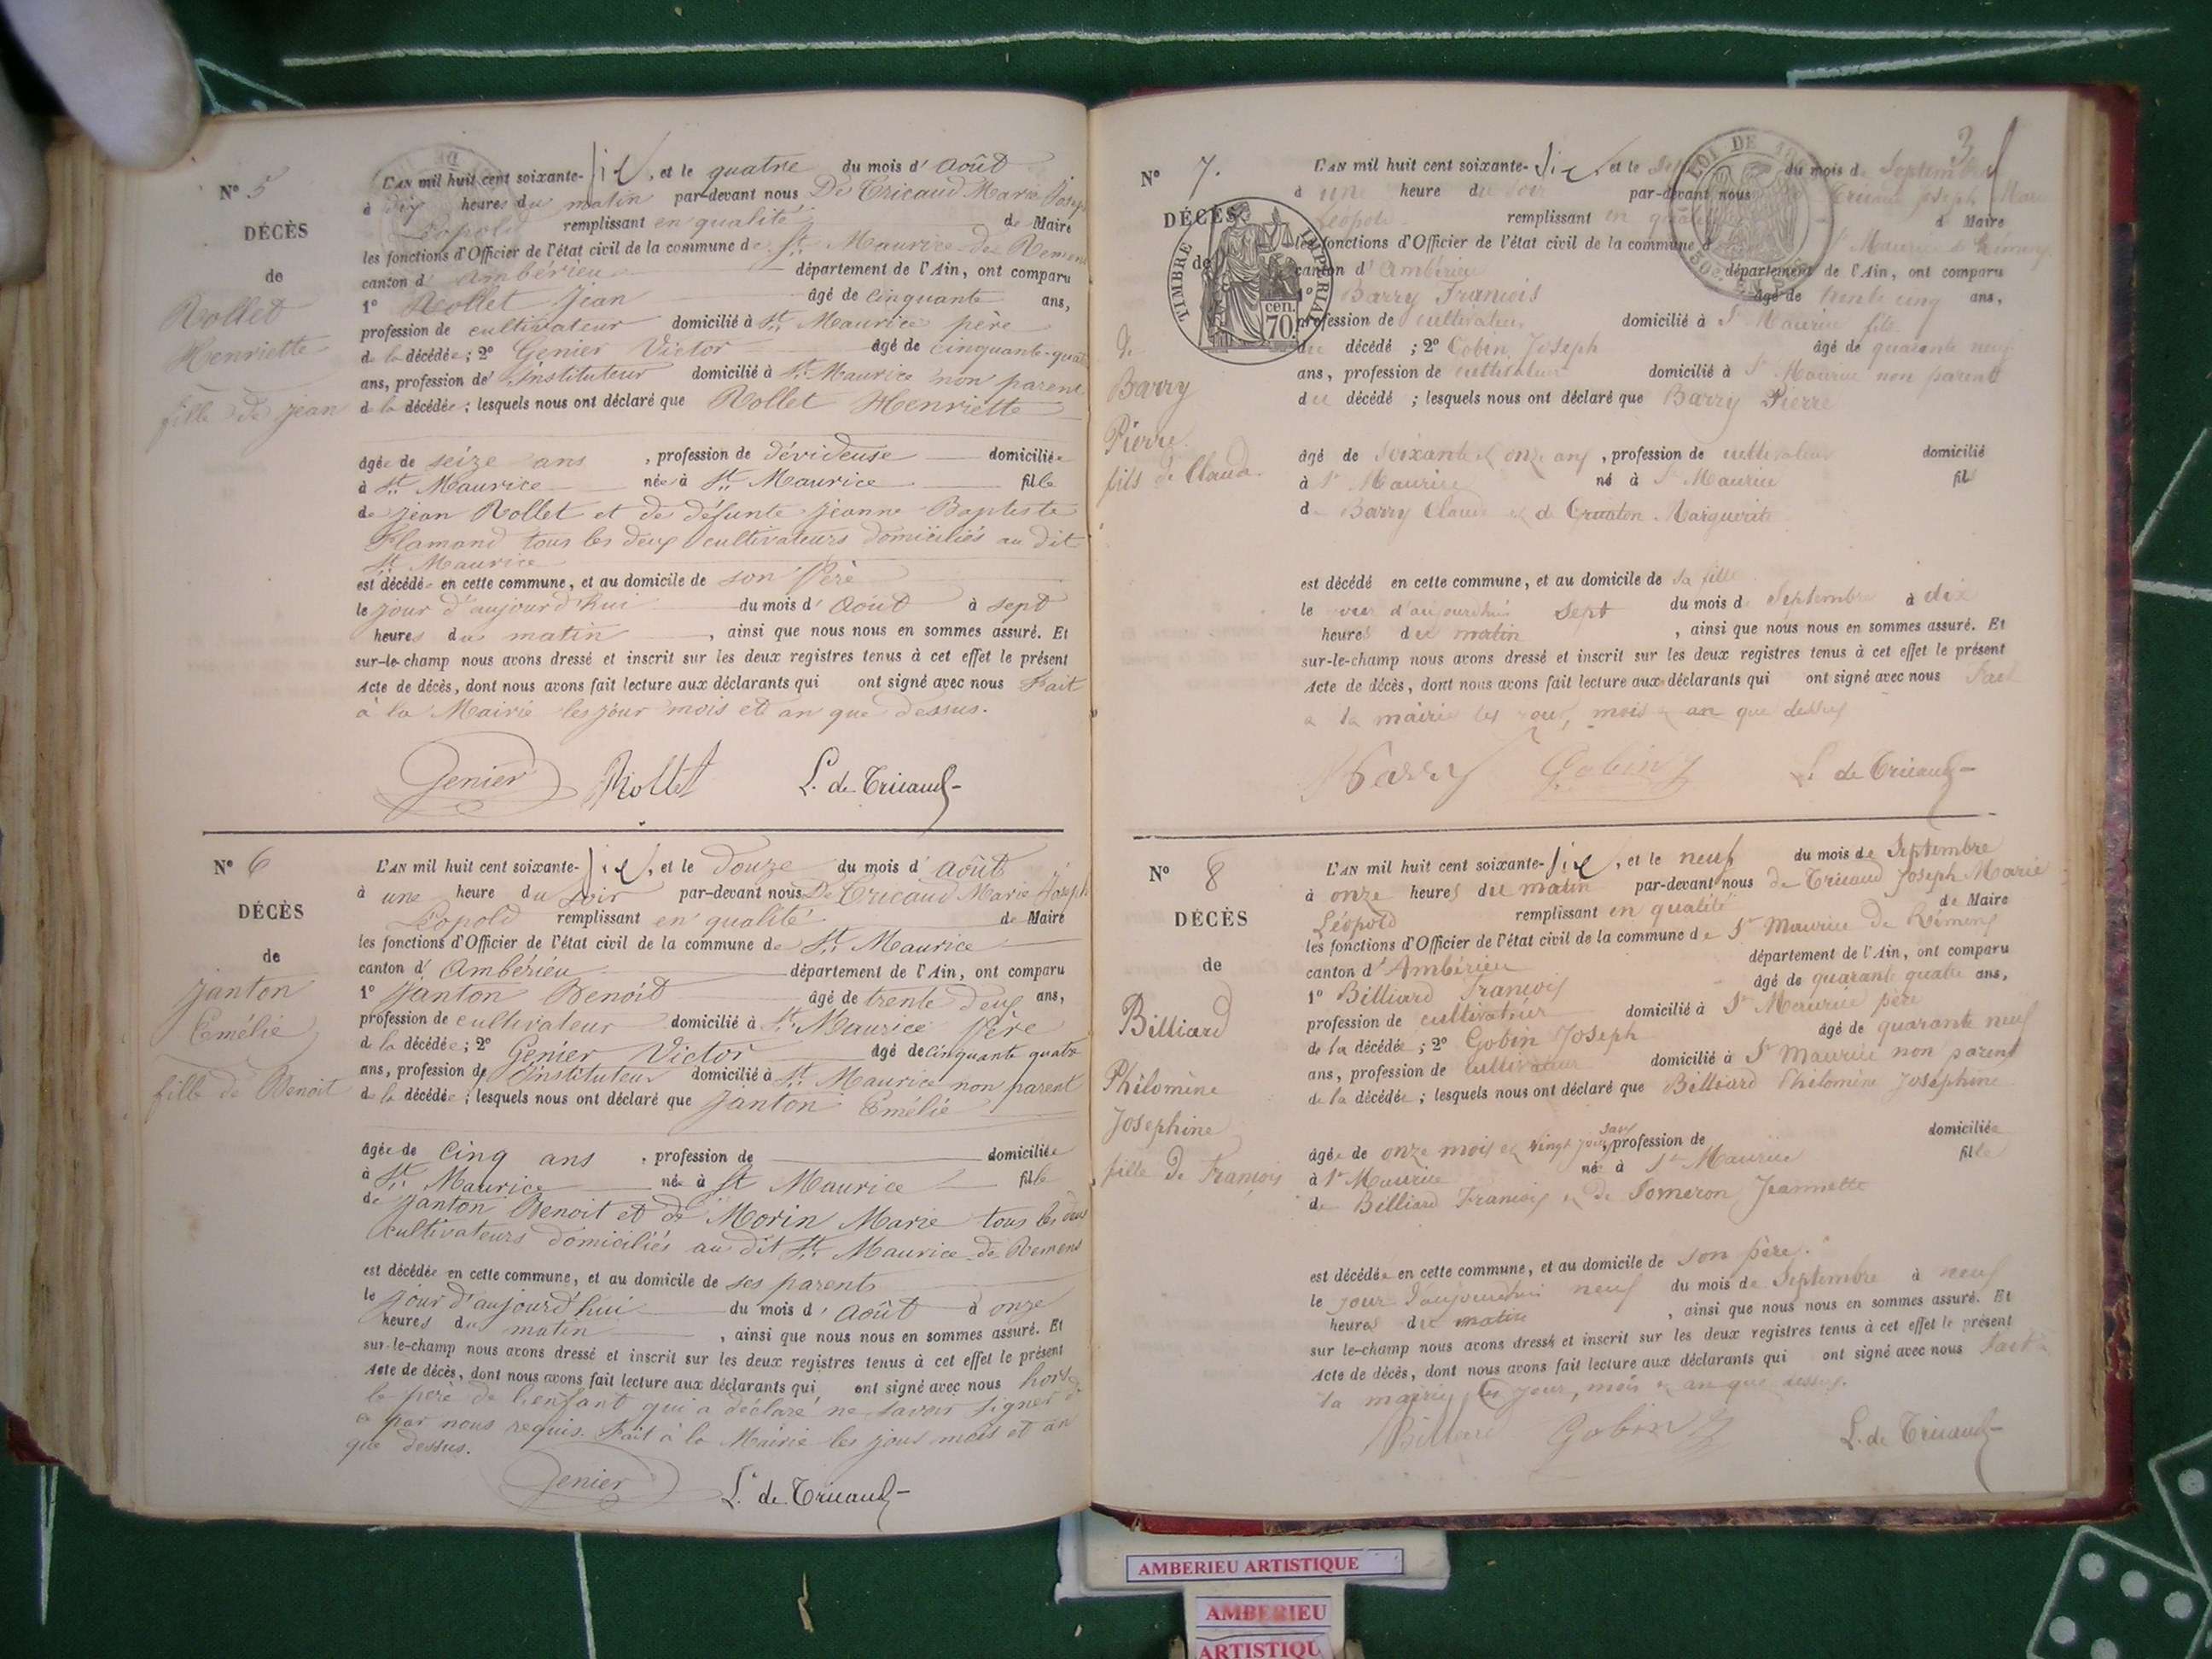 N° 5
DÉCÈS
de
Rollet
Henriette
fille de jean
L'AN mil huit cent soixante-six, et le quatre du mois d'Août
à dix heures du matin par-devant nous De Tricaud Marie Joseph
Léopold remplissant en qualité de Maire
les fonctions d'Officier de l'état civil de la commune de St Maurice de Remens
canton d'Ambérieu département de l'Ain, ont comparu
1° Rollet Jean âgé de cinquante ans,
profession de cultivateur domicilié à St Maurice père
de la décédée; 2° Genier Victor âgé de cinquante-quatre
ans, profession d'instituteur domicilié à St Maurice non parent
de la décédée; lesquels nous ont déclaré que Rollet Henriette
âgée de seize ans, profession de dévideuse domiciliée
à St Maurice née à St Maurice fille
de jean Rollet et de défunte jeanne Baptiste
Flamand tous les deux cultivateurs domiciliés au dit
St Maurice
est décédée en cette commune, et au domicile de son Père
le jour d'aujourd'hui du mois d'Août à sept
heures du matin, ainsi que nous nous en sommes assuré. Et
sur-le-champ nous avons dressé et inscrit sur les deux registres tenus à cet effet le présent
Acte de décès, dont nous avons fait lecture aux déclarants qui ont signé avec nous Fait
à la Mairie les jour mois et an que dessus.
Genier Rollet L. de Tricaud
N° 6
DÉCÈS
de
Janton
Emélie
fille de Benoit
L'AN mil huit cent soixante-six, et le Douze du mois d'août
à une heure du soir par-devant nous De Tricaud Marie Joseph
Léopold remplissant en qualité de Maire
les fonctions d'Officier de l'état civil de la commune de St Maurice
canton d'Ambérieu département de l'Ain, ont comparu
1° Janton Benoit âgé de trente deux ans,
profession de cultivateur domicilié à St Maurice Père
de la décédée; 2° Genier Victor âgé de cinquante quatre
ans, profession de instituteur domicilié à St Maurice non parent
de la décédée; lesquels nous ont déclaré que Janton Emélie
âgée de Cinq ans, profession de domiciliée
à St Maurice née à St Maurice fille
de Janton Benoit et de Morin Marie tous les deux
cultivateurs domiciliés au dit St Maurice de Remens
est décédée en cette commune, et au domicile de ses parents
le jour d'aujourd'hui du mois d'Août à onze
heures du matin, ainsi que nous nous en sommes assuré. Et
sur-le-champ nous avons dressé et inscrit sur les deux registres tenus à cet effet le présent
Acte de décès, dont nous avons fait lecture aux déclarants qui ont signé avec nous hors
le père de l'enfant qui a déclaré ne savoir signer de
ce par nous requis. Fait à la Mairie les jour mois et an
que dessus.
Genier L. de Tricaud
3
N° 7.
DÉCÈS
de
TIMBRE IMPÉRIAL
70 cen.
LOI DE
50
de
Barry
Pierre
fils de Claude.
L'AN mil huit cent soixante-six, et le Sept du mois de Septembre
à une heure du soir par-devant nous Tricaud Joseph Marie
Léopold remplissant en qualité d Maire
les fonctions d'Officier de l'état civil de la commune d St Maurice de Rémens
canton d'Ambérieu département de l'Ain, ont comparu
1° Barry François âgé de trente cinq ans,
profession de cultivateur domicilié à St Maurice fils
du décédé; 2° Gobin Joseph âgé de quarante neuf
ans, profession de cultivateur domicilié à St Maurice non parent
du décédé; lesquels nous ont déclaré que Barry Pierre
âgé de Soixante et onze ans, profession de cultivateur domicilié
à St Maurice né à St Maurice fil
d Barry Claude et d Marguerite
est décédé en cette commune, et au domicile de sa fille
le jour d'aujourdhui sept du mois d Septembre à dix
heures du matin, ainsi que nous nous en sommes assuré. Et
sur-le-champ nous avons dressé et inscrit sur les deux registres tenus à cet effet le présent
Acte de décès, dont nous avons fait lecture aux déclarants qui ont signé avec nous Fait
a la mairie les jour, mois et an que dessus
Barry Gobin J L. de Tricaud
N° 8
DÉCÈS
de
Billiard
Philomène
Josephine
fille de François
L'AN mil huit cent soixante-six, et le neuf du mois de Septembre
à onze heures du matin par-devant nous de Tricaud Joseph Marie
Léopold remplissant en qualité de Maire
les fonctions d'Officier de l'état civil de la commune de St Maurice de Rémens
canton d'Ambérieu département de l'Ain, ont comparu
1° Billiard François âgé de quarante quatre ans,
profession de cultivateur domicilié à St Maurice père
de la décédée; 2° Gobin Joseph âgé de quarante neuf
ans, profession de cultivateur domicilié à St Maurice non parent
de la décédée; lesquels nous ont déclaré que Billiard Philomène Joséphine
âgée de onze mois et vingt jours, sans profession de domiciliée
à St Maurice née à St Maurice fille
de Billiard François et de Pomeron Jeannette
est décédée en cette commune, et au domicile de son père.
le jour d'aujourdhui neuf du mois de Septembre à neuf
heures du matin, ainsi que nous nous en sommes assuré. Et
sur le-champ nous avons dressé et inscrit sur les deux registres tenus à cet effet le présent
Acte de décès, dont nous avons fait lecture aux déclarants qui ont signé avec nous Fait à
la mairie les jour, mois et an que dessus.
Billiard Gobin J L. de Tricaud
AMBERIEU ARTISTIQUE
AMBERIEU
ARTISTIQU